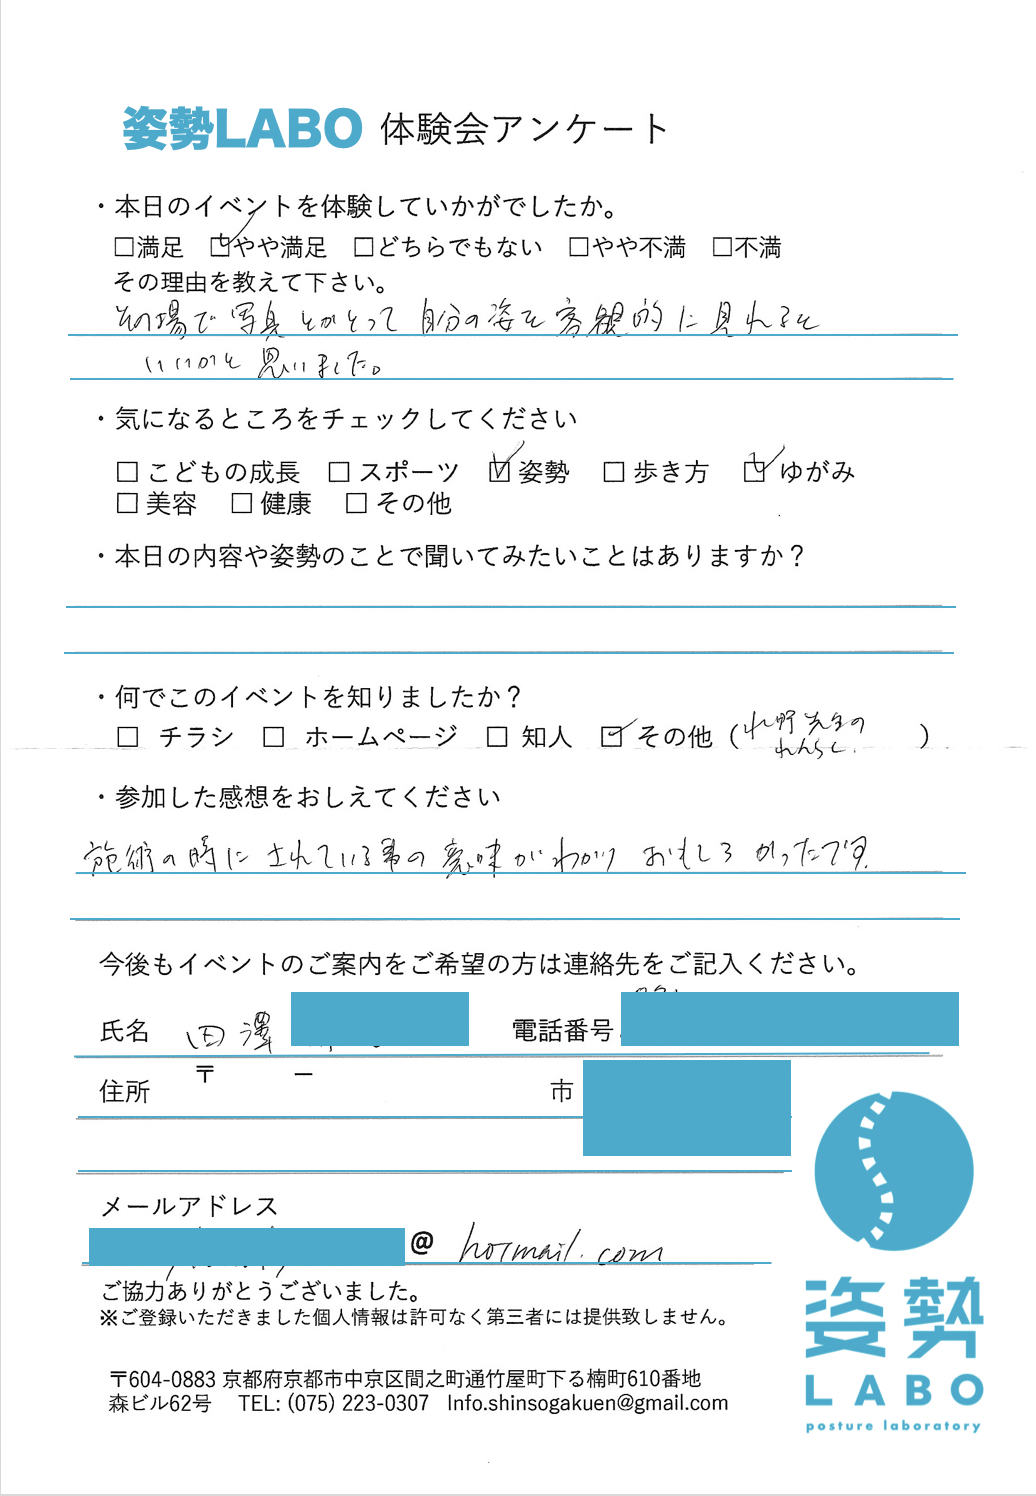 姿勢LABO 体験会アンケート
・本日のイベントを体験していかがでしたか。
□満足 ☑やや満足 □どちらでもない □やや不満 □不満
その理由を教えて下さい。
その場で写真とかとって自分の姿を客観的に見れると
いいかと思いました。
・気になるところをチェックしてください
□ こどもの成長 □ スポーツ ☑ 姿勢 □ 歩き方 ☑ ゆがみ
□ 美容 □ 健康 □ その他
・本日の内容や姿勢のことで聞いてみたいことはありますか？
・何でこのイベントを知りましたか？
□ チラシ □ ホームページ □ 知人 ☑ その他（野先生の
れんらく. ）
・参加した感想をおしえてください
施術の時にされている事の意味がわかりおもしろかったです.
今後もイベントのご案内をご希望の方は連絡先をご記入ください。
氏名 田澤 電話番号
〒 ー
住所 市
メールアドレス
@ hotmail.com
ご協力ありがとうございました。
※ご登録いただきました個人情報は許可なく第三者には提供致しません。
姿勢
LABO
posture laboratory
〒604-0883 京都府京都市中京区間之町通竹屋町下る楠町610番地
森ビル62号 TEL: (075) 223-0307 Info.shinsogakuen@gmail.com